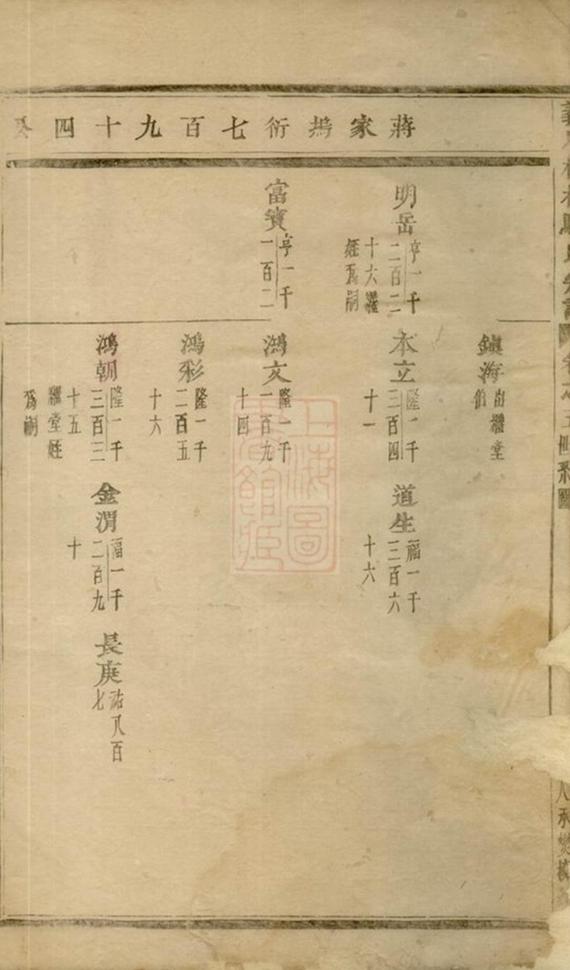 蔣家塢衍七百九十四
明岳
亨一千
二百二
十六繼
姪爲嗣
富寶
亨一千
一百二
鎮海
出繼堂
伯
本立
隆一千
三百四
十一
道生
福一千
三百六
十六
鴻文
隆一千
一百九
十四
鴻彩
隆一千
二百五
十六
鴻朝
隆一千
三百三
十五
繼堂姪
爲嗣
金渭
福一千
二百九
十
長庚
祐八百
七